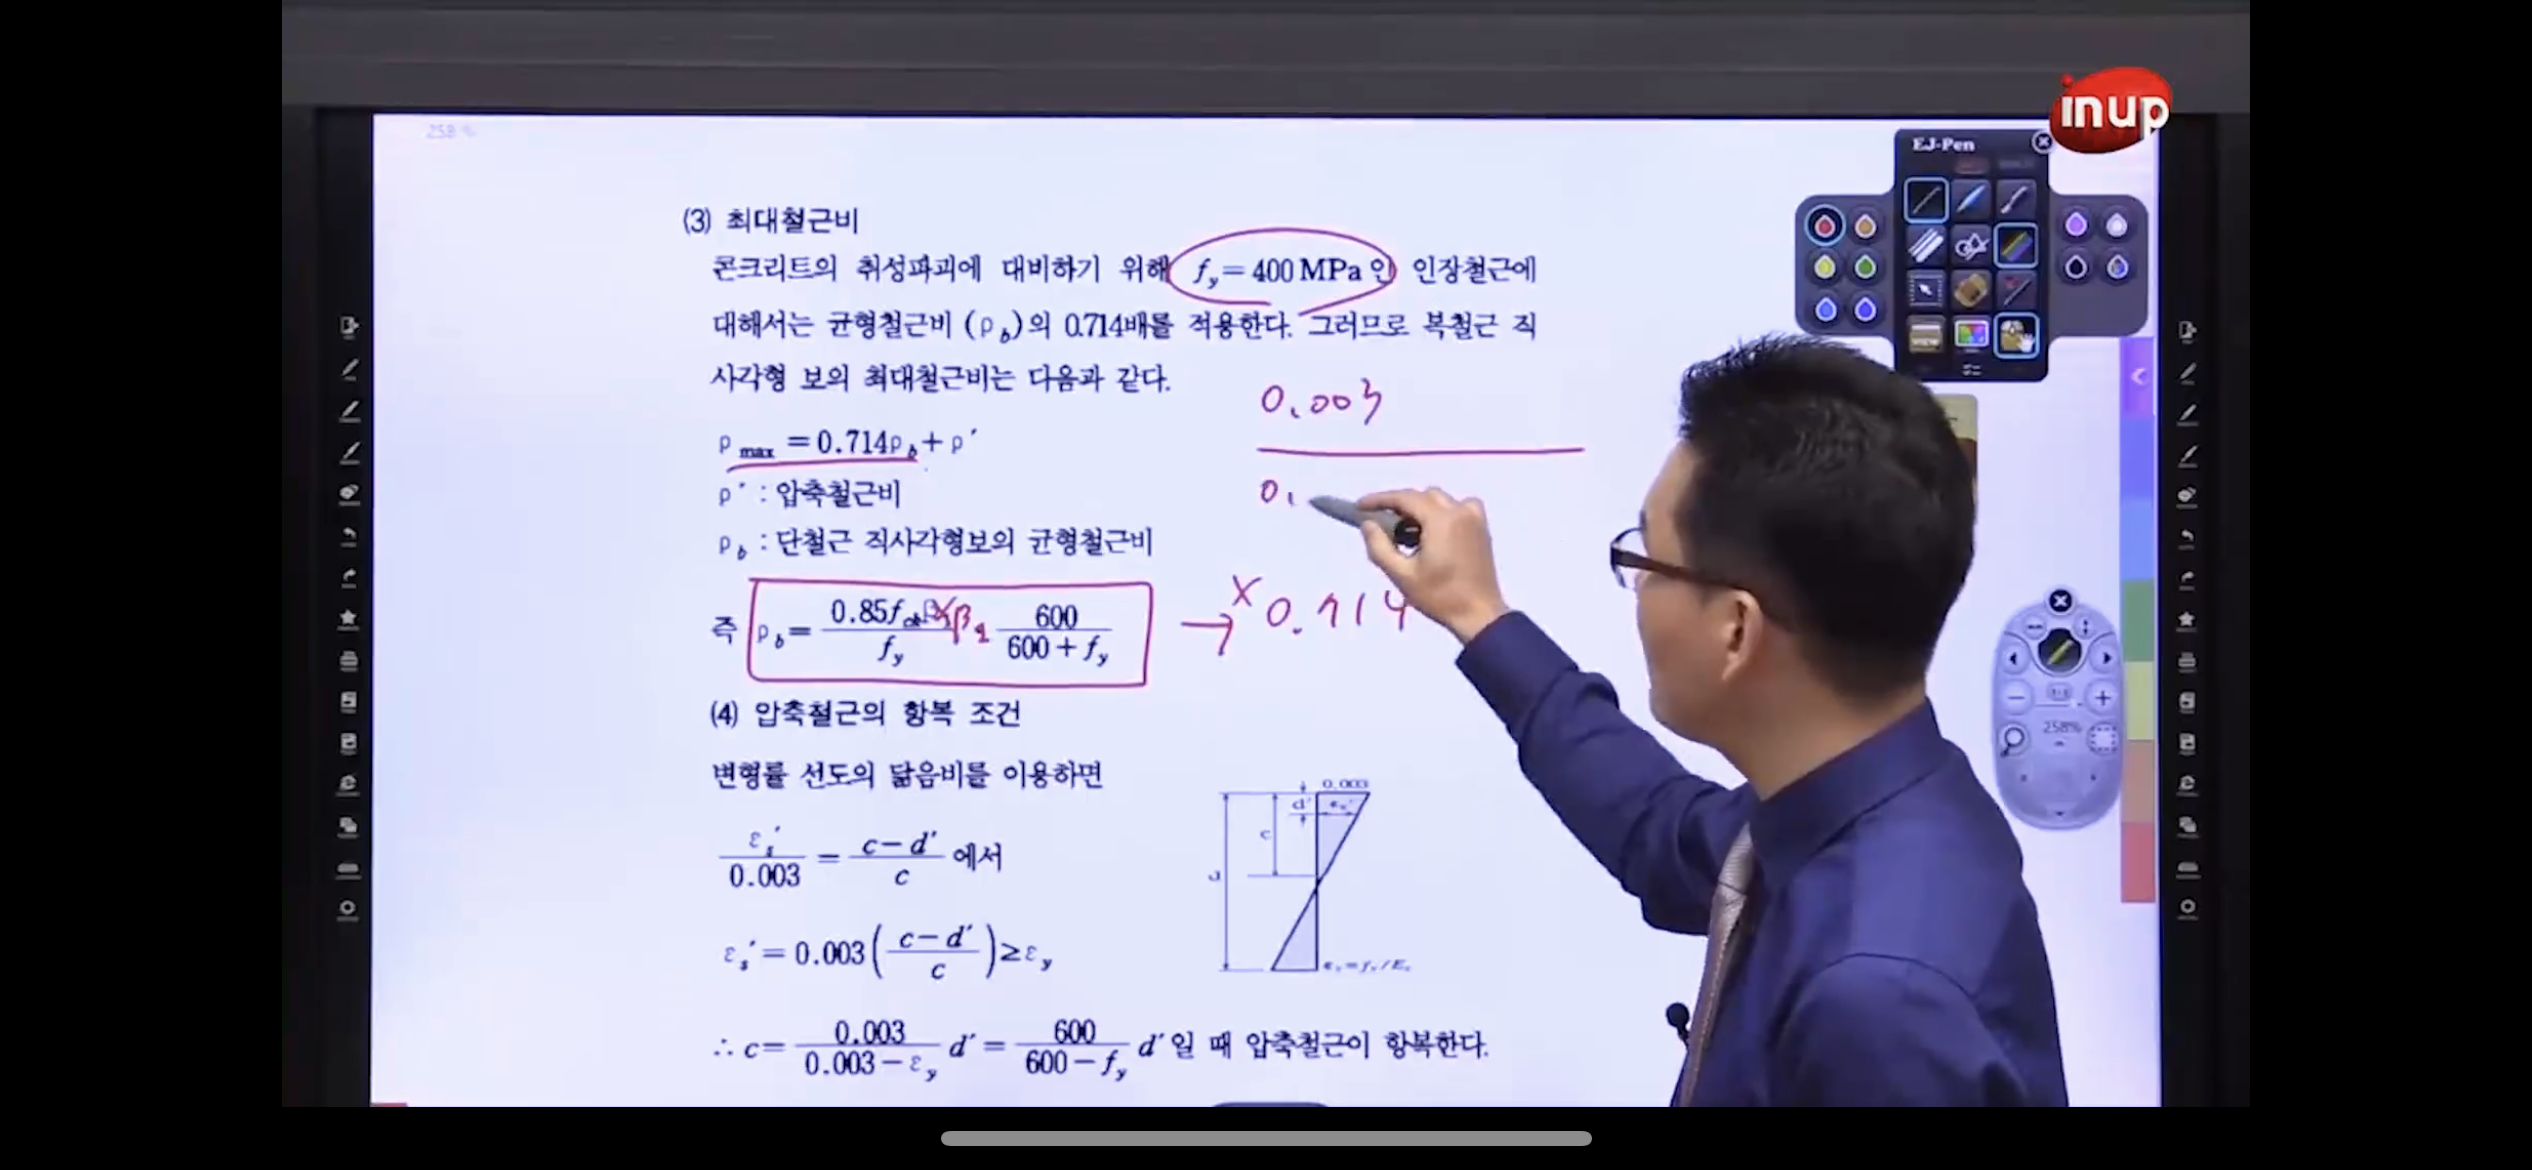 inup
258 %
EJ-Pen
(3) 최대철근비
콘크리트의 취성파괴에 대비하기 위해 f_y = 400 MPa 인 인장철근에
대해서는 균형철근비 (ρ_b)의 0.714배를 적용한다. 그러므로 복철근 직
사각형 보의 최대철근비는 다음과 같다.
0.003
ρ_max = 0.714ρ_b + ρ′
0.
ρ′ : 압축철근비
ρ_b : 단철근 직사각형보의 균형철근비
즉 ρ_b = 0.85f_ck β_1 / f_y 600 / (600 + f_y) → × 0.714
(4) 압축철근의 항복 조건
변형률 선도의 닮음비를 이용하면
ε_s′ / 0.003 = (c − d′) / c 에서
ε_s′ = 0.003 ( (c − d′) / c ) ≥ ε_y
∴ c = 0.003 / (0.003 − ε_y) d′ = 600 / (600 − f_y) d′ 일 때 압축철근이 항복한다.
0.003
d′
c
258%